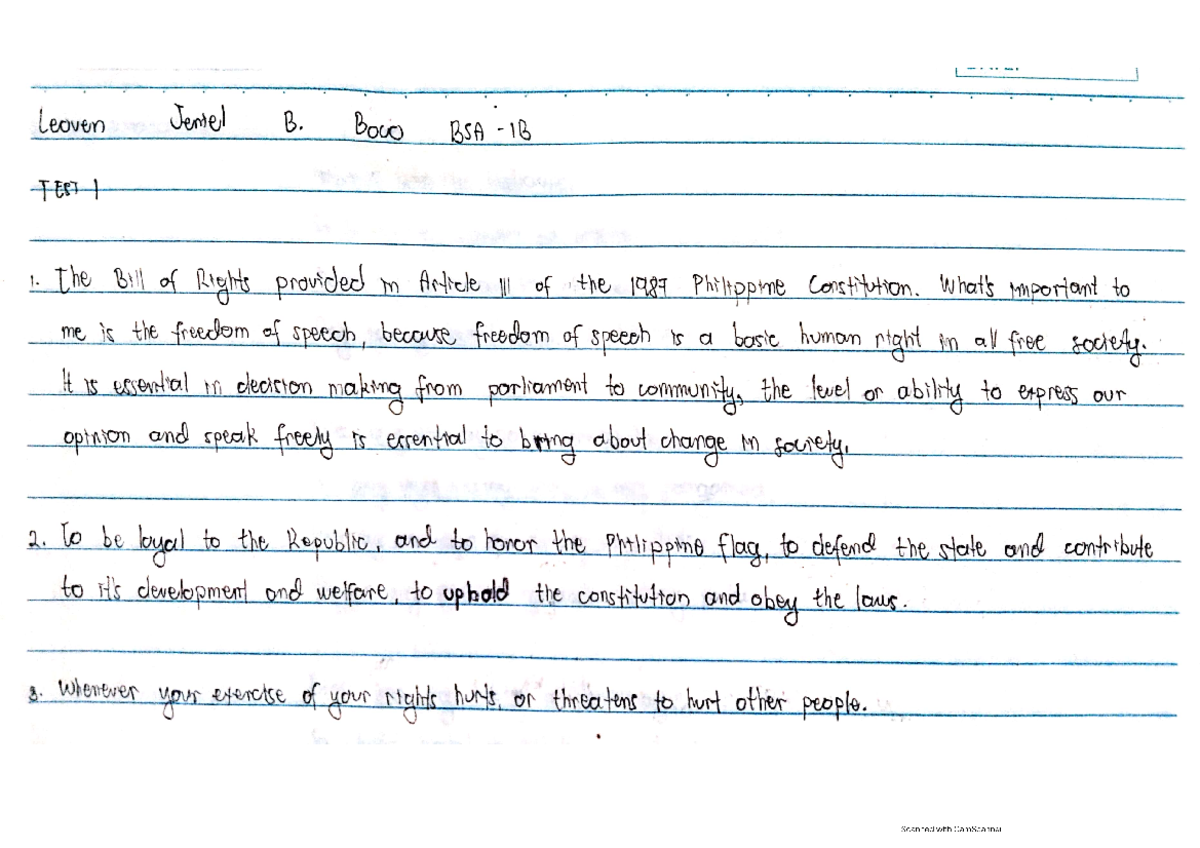 Leoven Jemel B. Boco BSA - 1B
TEST 1
1. The Bill of Rights provided in Article III of the 1987 Philippine Constitution. What's important to
me is the freedom of speech, because freedom of speech is a basic human right in all free society.
It is essential in decision making from parliament to community, the level or ability to express our
opinion and speak freely is essential to bring about change in society.
2. To be loyal to the Republic, and to honor the Philippine flag, to defend the state and contribute
to it's development and welfare, to uphold the constitution and obey the laws.
3. Whenever your exercise of your rights hurts, or threatens to hurt other people.
Scanned with CamScanner